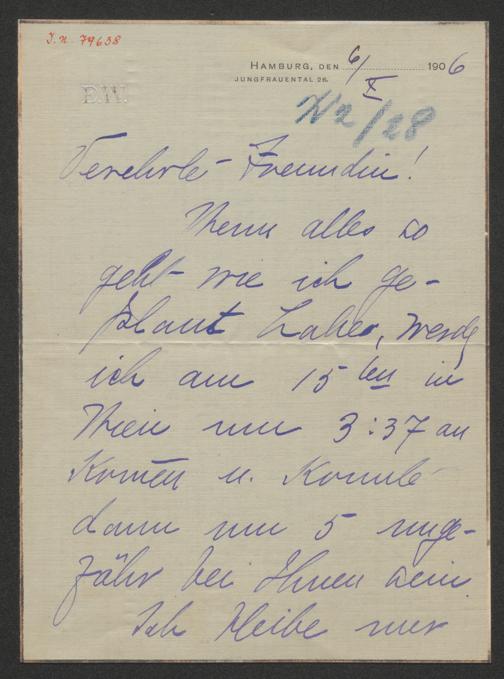 I.N. 79638
HAMBURG, DEN 6/X 1906
JUNGFRAUENTAL 28.
E.W.
N2/28
Verehrte Freundin!
Wenn alles so
geht wie ich ge-
plant habe, werde
ich am 15ten in
Wien um 3:37 an
komen u. könnte
dann um 5 unge-
fähr bei Ihnen sein
Ich bleibe nur